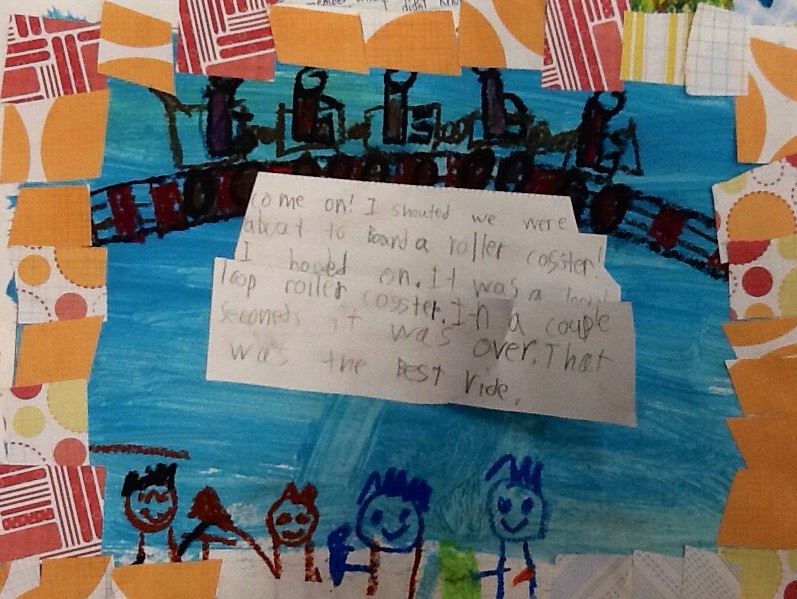 didn't kn
come on! I shouted we were
about to Board a roller cosster!
I on. It was a
loop roller cosster. In a couple
seconeds it was over. That
was the BEST ride.